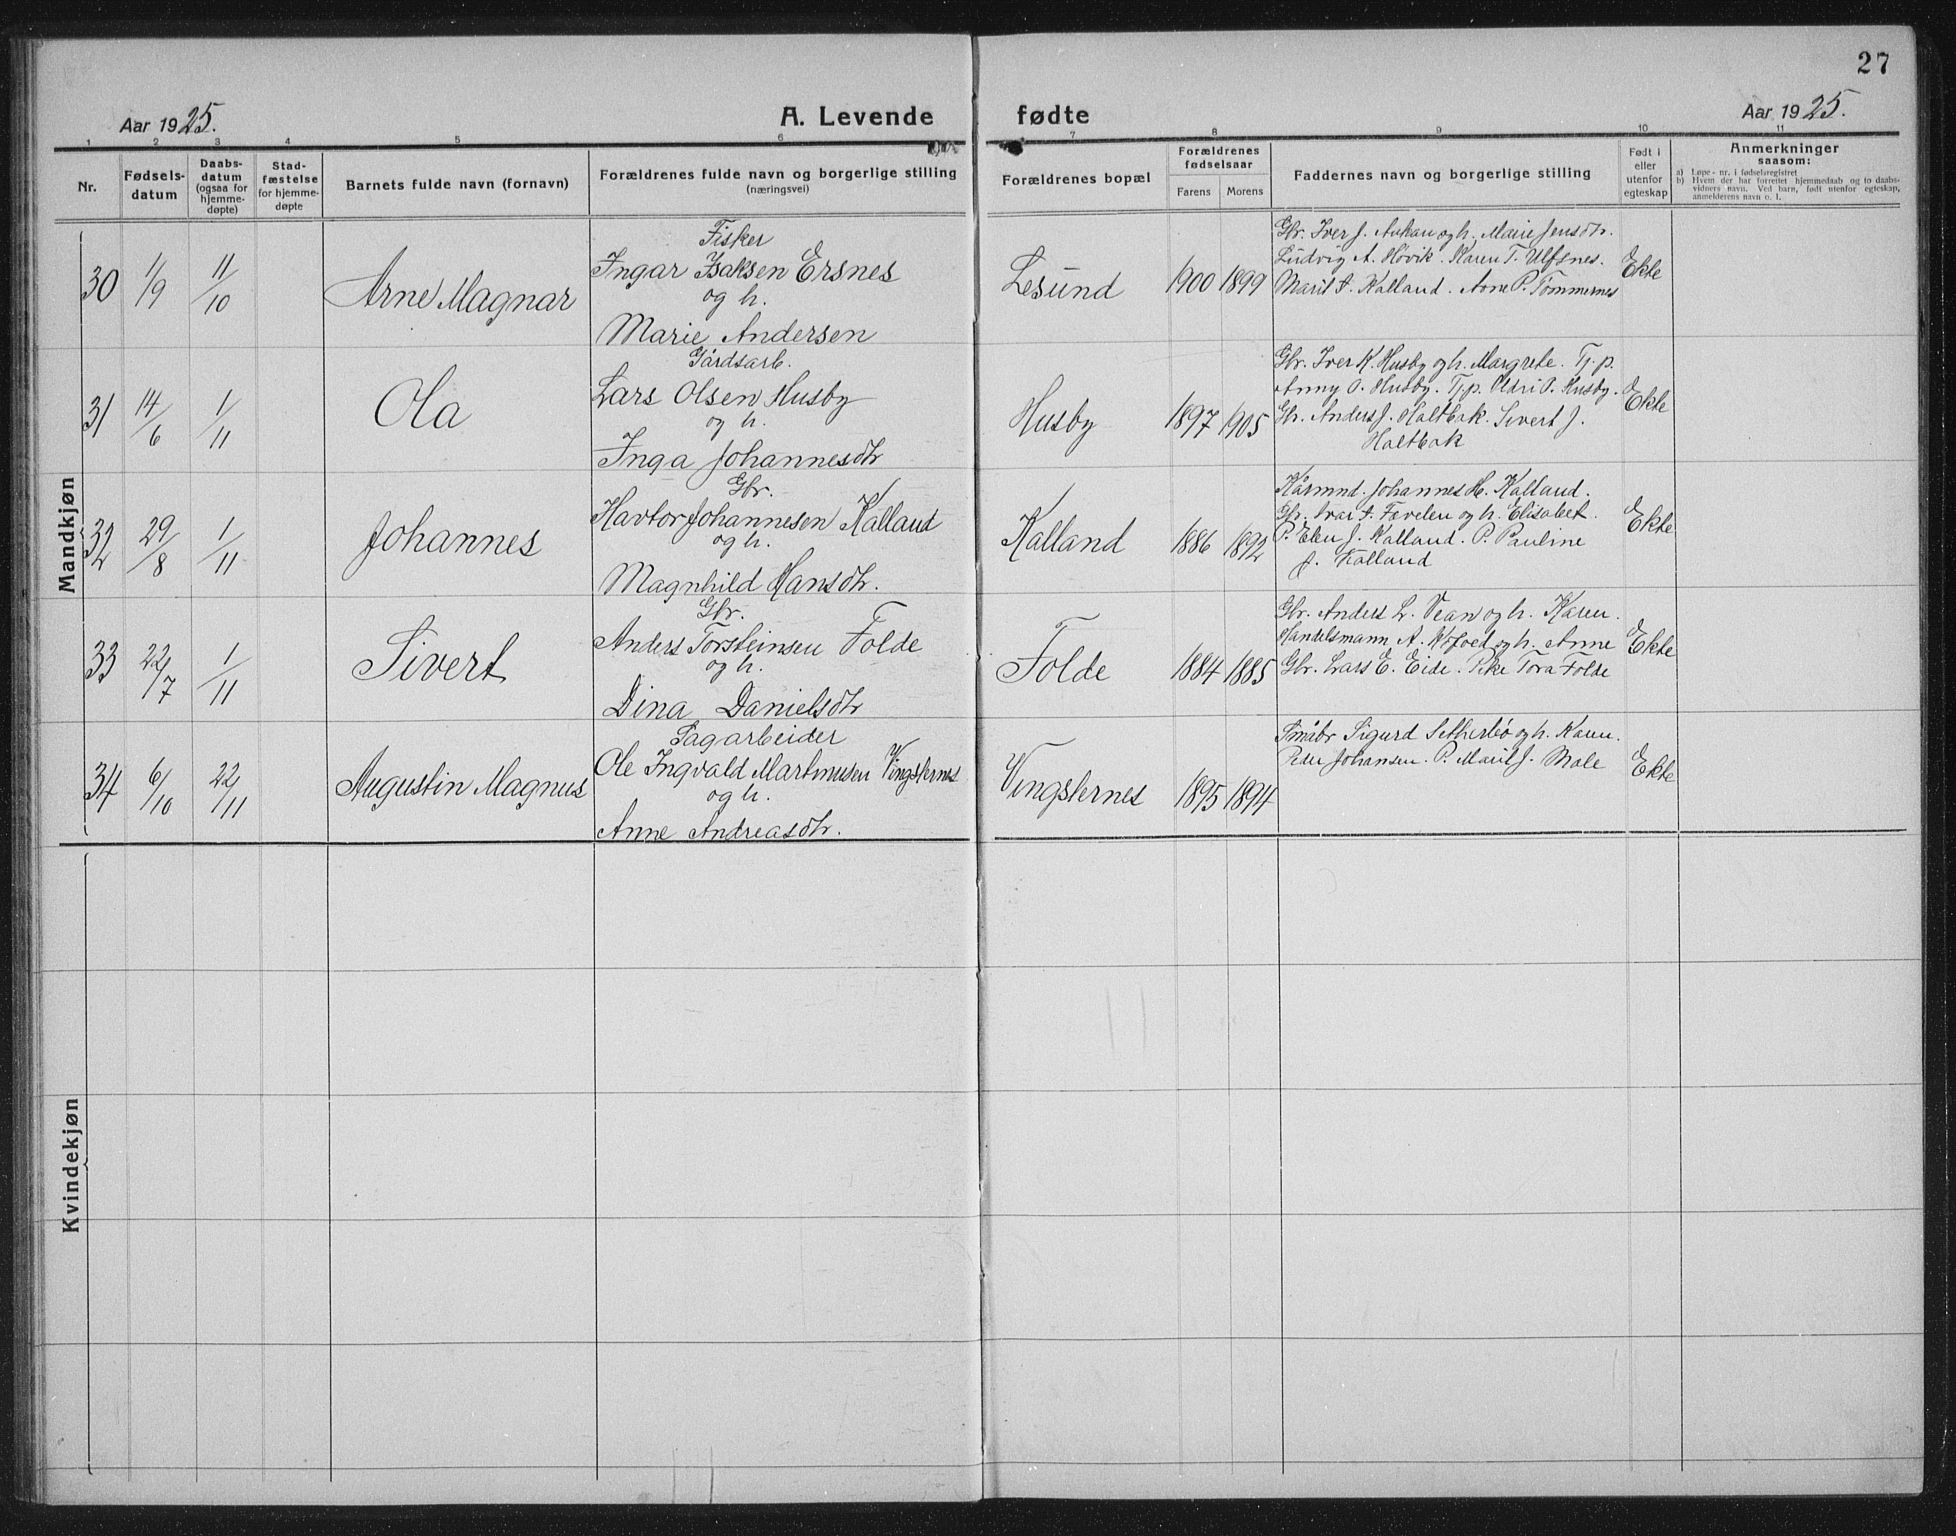 27
Aar 1925.
A. Levende fødte
Aar 1925.
1 2 3 4 5 6 7 8 9 10 11
Nr.
Fødsels-
datum
Daabs-
datum
(ogsaa for
hjemme-
døpte)
Stad-
fæstelse
for hjemme-
døpte
Barnets fulde navn (fornavn)
Forældrenes fulde navn og borgerlige stilling
(næringsvei)
Forældrenes bopæl
Forældrenes
fødselsaar
Farens Morens
Faddernes navn og borgerlige stilling
Født i
eller
utenfor
egteskap
Anmerkninger
saasom:
a) Løpe-nr. i fødselsregistret
b) Hvem der har forrettet hjemmedaab og to daabs-
vidners navn. Ved barn, født utenfor egteskap,
anmelderens navn o. l.
Mandkjøn
30
1/9
11/10
Arne Magnar
Fisker
Ingar Isaksen Ersnes
og h.
Marie Andersen
Lesund
1900 1899
Gbr. Iver J. og h. Marie Jensdtr.
Ludvig A. Hövik. Karen T. Ulfsnes.
Marit A. Kalland. Arne P. Tömmernes
Ekte
31
14/6
1/11
Ola
Gårdsarb.
Lars Olsen Husby
og h.
Inga Johannesdtr
Husby
1897 1905
Gbr. Iver K. Husby og h. Margrete. Tj. p.
Anny O. Husby. Tj. p. Oldri O. Husby.
Gbr. Anders J. Holtbak. Sivert J.
Holtbak
Ekte
32
29/8
1/11
Johannes
Gbr.
Havtor Johannesen Kalland
og h.
Magnhild Hansdtr.
Kalland
1886 1892
Kårmnd. Johannes H. Kalland.
Gbr. Ivar og h. Elisabet.
P. Elen J. Kalland. P. Pauline
J. Kalland
Ekte
33
22/7
1/11
Sivert
Gbr.
Anders Torsteinsen Folde
og h.
Dina Danielsdtr
Folde
1884 1885
Gbr. Anders L. Vean og h. Karen.
Handelsmann A. og h. Anne
Gbr. Lars E. Eide. Pike Tora Folde
Ekte
34
6/10
22/11
Augustin Magnus
Sagarbeider
Ole Ingvald Martinusen Vingsternes
og h.
Anne Andreasdtr.
Vingsternes
1895 1894
Småbr. Sigurd og h. Karen.
Peder Johansen. P. Marit J. Mole
Ekte
Kvindekjøn